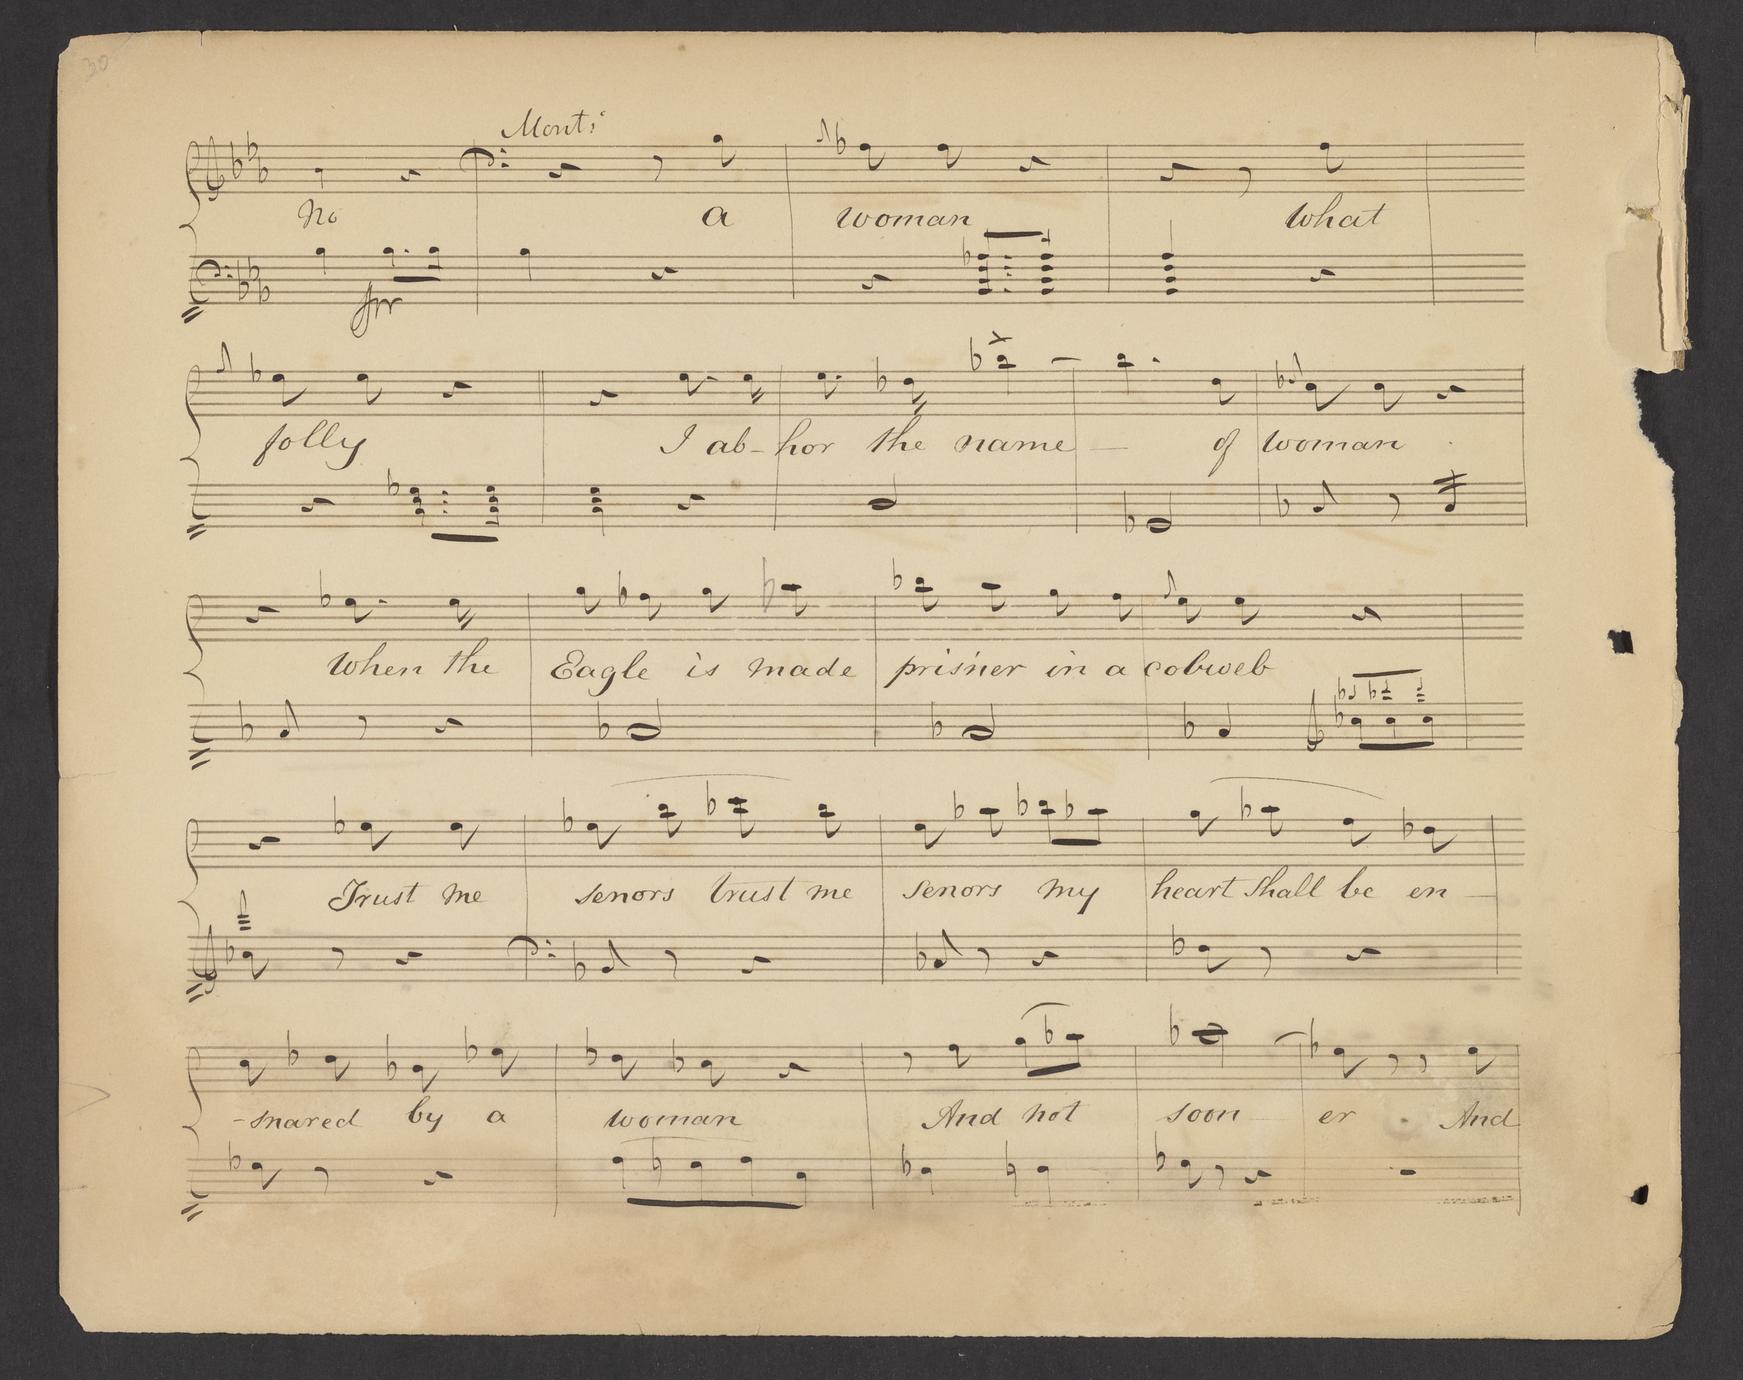 30
Mont:
No a woman what
folly I ab- hor the name — of woman .
When the Eagle is made pris'ner in a cobweb
Trust me senors trust me senors my heart shall be en —
- snared by a woman And not soon er . And